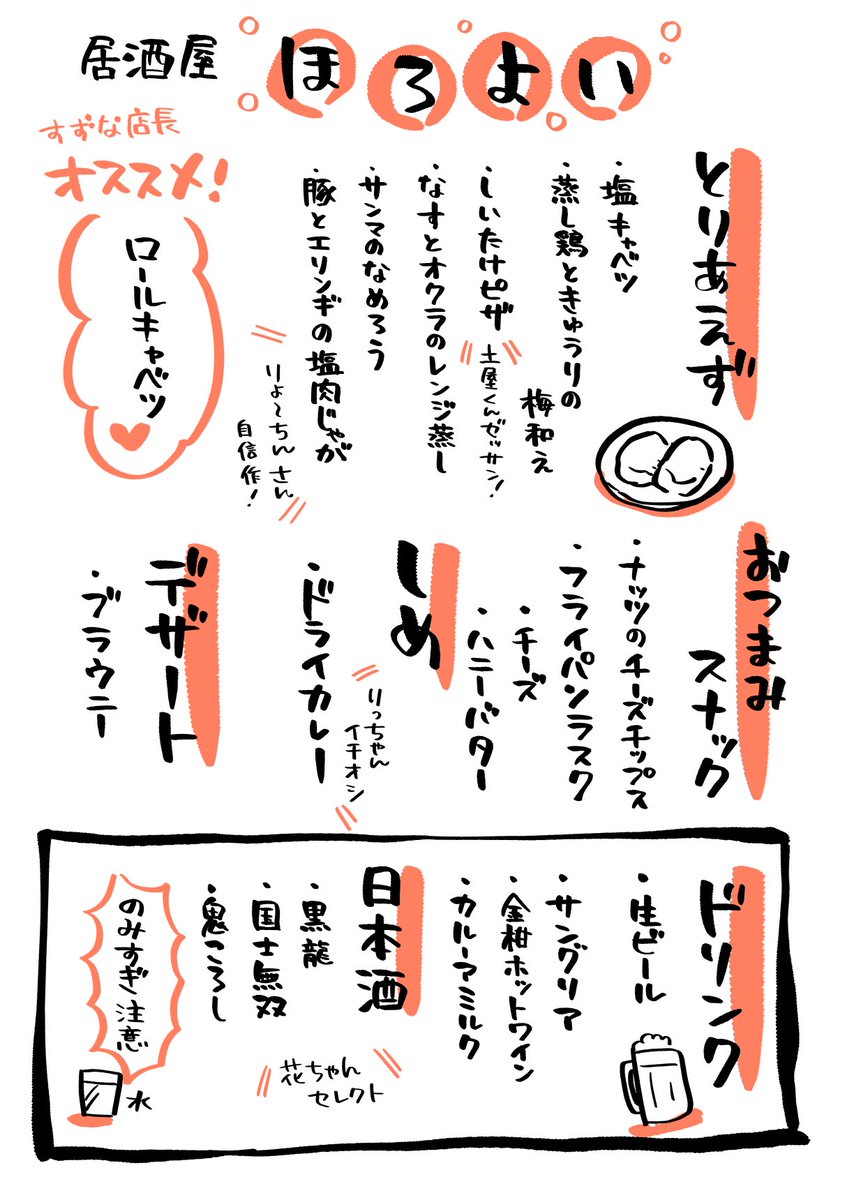 居酒屋 ほろよい
すずな店長
オススメ!
ロールキャベツ
とりあえず
・塩キャベツ
・蒸し鶏ときゅうりの
梅和え
・しいたけピザ
土屋くんゼッサン!
・なすとオクラのレンジ蒸し
・サンマのなめろう
・豚とエリンギの塩肉じゃが
りょ〜ちんさん
自信作!
おつまみ
スナック
・ナッツのチーズチップス
・フライパンラスク
・チーズ
・ハニーバター
しめ
・ドライカレー
りっちゃん
イチオシ
デザート
・ブラウニー
ドリンク
・生ビール
・サングリア
・金柑ホットワイン
・カルーアミルク
日本酒
・黒龍
・国士無双
・鬼ころし
花ちゃん
セレクト
のみすぎ注意
水